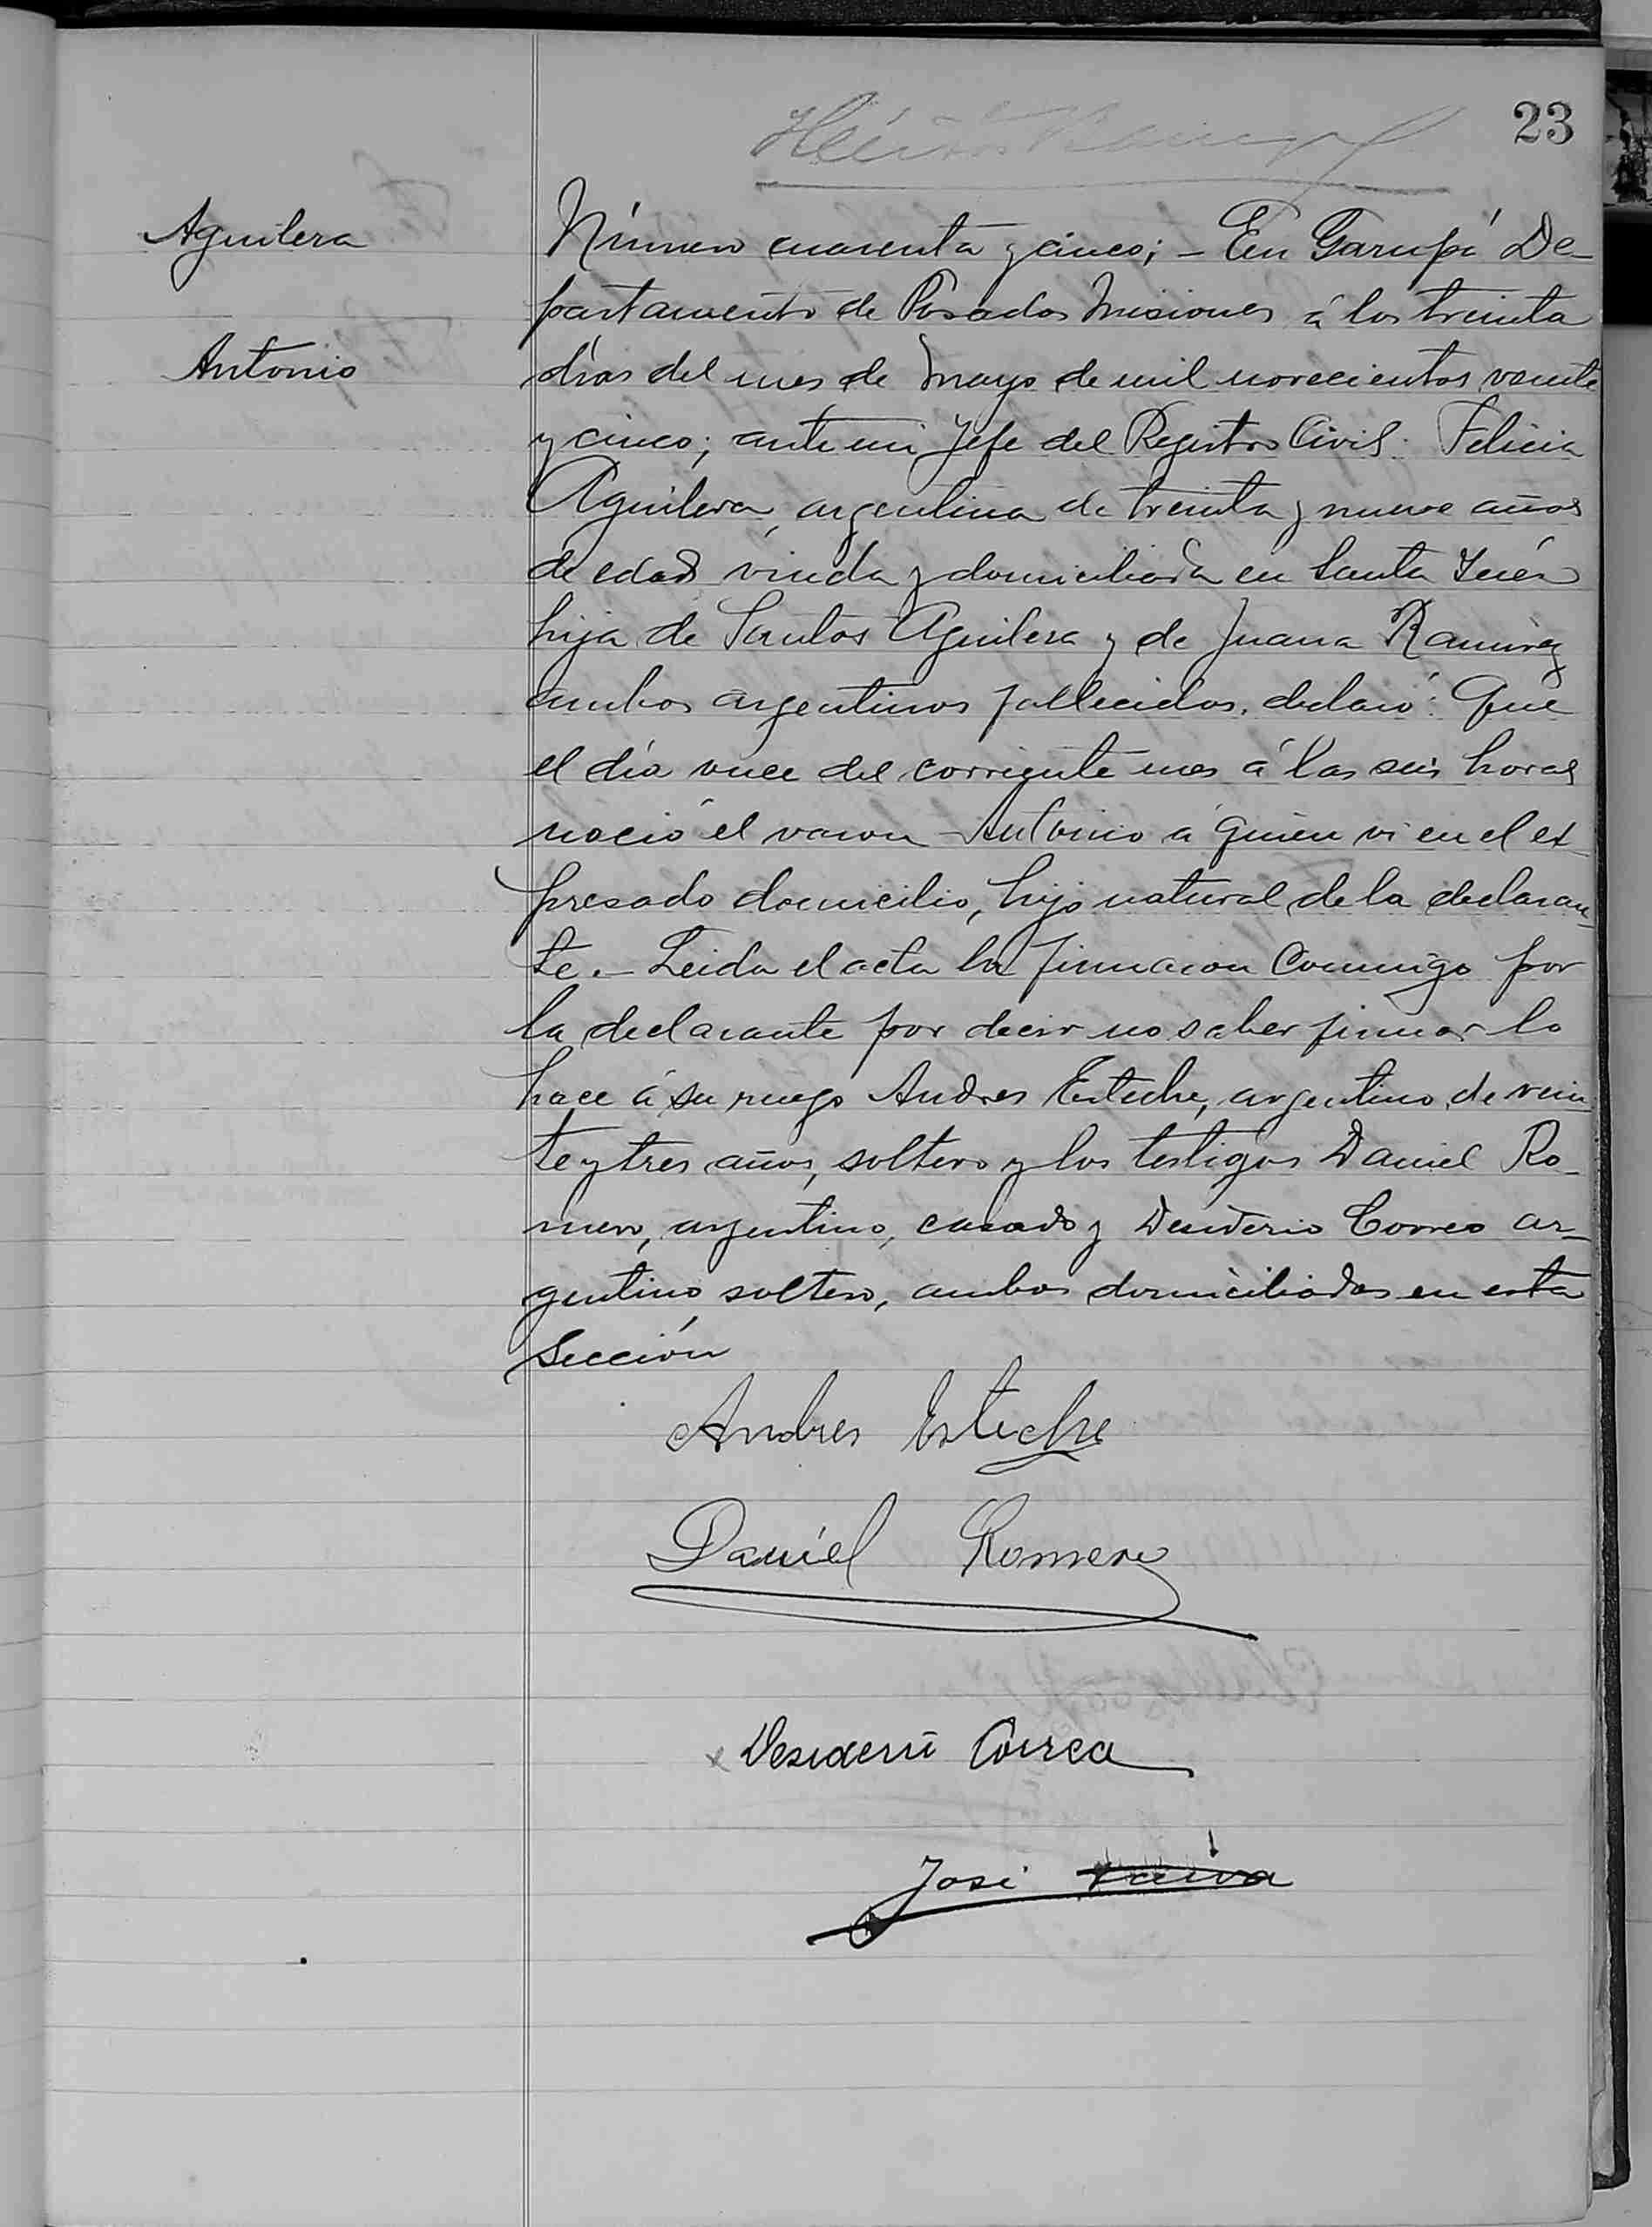 23
Aguilera
Antonio
Número cuarenta y cinco; - En Garupá De-
partamento de Posadas Misiones á los treinta
días del mes de Mayo de mil novecientos veinte
y cinco; ante mi Jefe del Registro Civil. Felicia
Aguilera, argentina de treinta y nueve años
de edad viuda y domiciliada en Santa Inés
hija de Santos Aguilera y de Juana Ramirez
ambos argentinos fallecidos, declaró: Que
el día once del corriente mes á las seis horas
nació el varon Antonio á quien vi en el ex-
presado domicilio, hijo natural de la declaran-
te. - Leida el acta la firmaron conmigo por
la declarante por decir no saber firmar lo
hace á su ruego Andres Esteche, argentino, de vein
te y tres años, soltero y los testigos Daniel Ro-
mero, argentino, casado y Desiderio Correa ar-
gentino soltero, ambos domiciliados en esta
Sección
Andres Esteche
Daniel Romero
Desiderio Correa
José